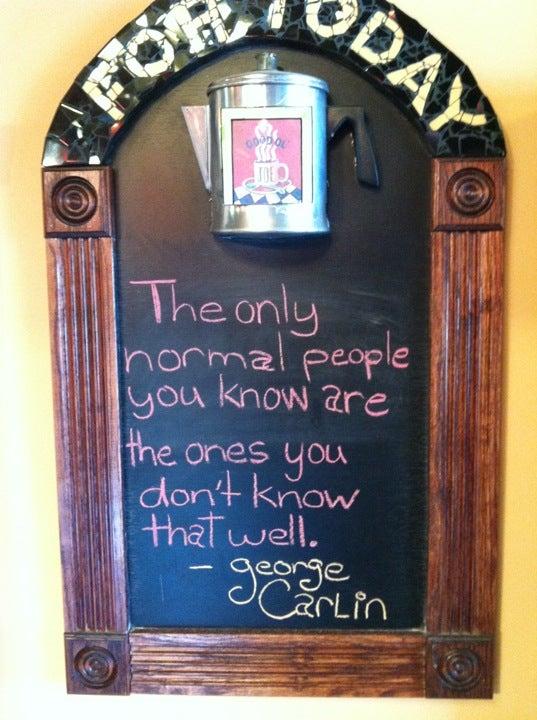 FOR TODAY
GOOD OL'
JOE
The only
normal people
you know are
the ones you
don't know
that well.
- george
Carlin